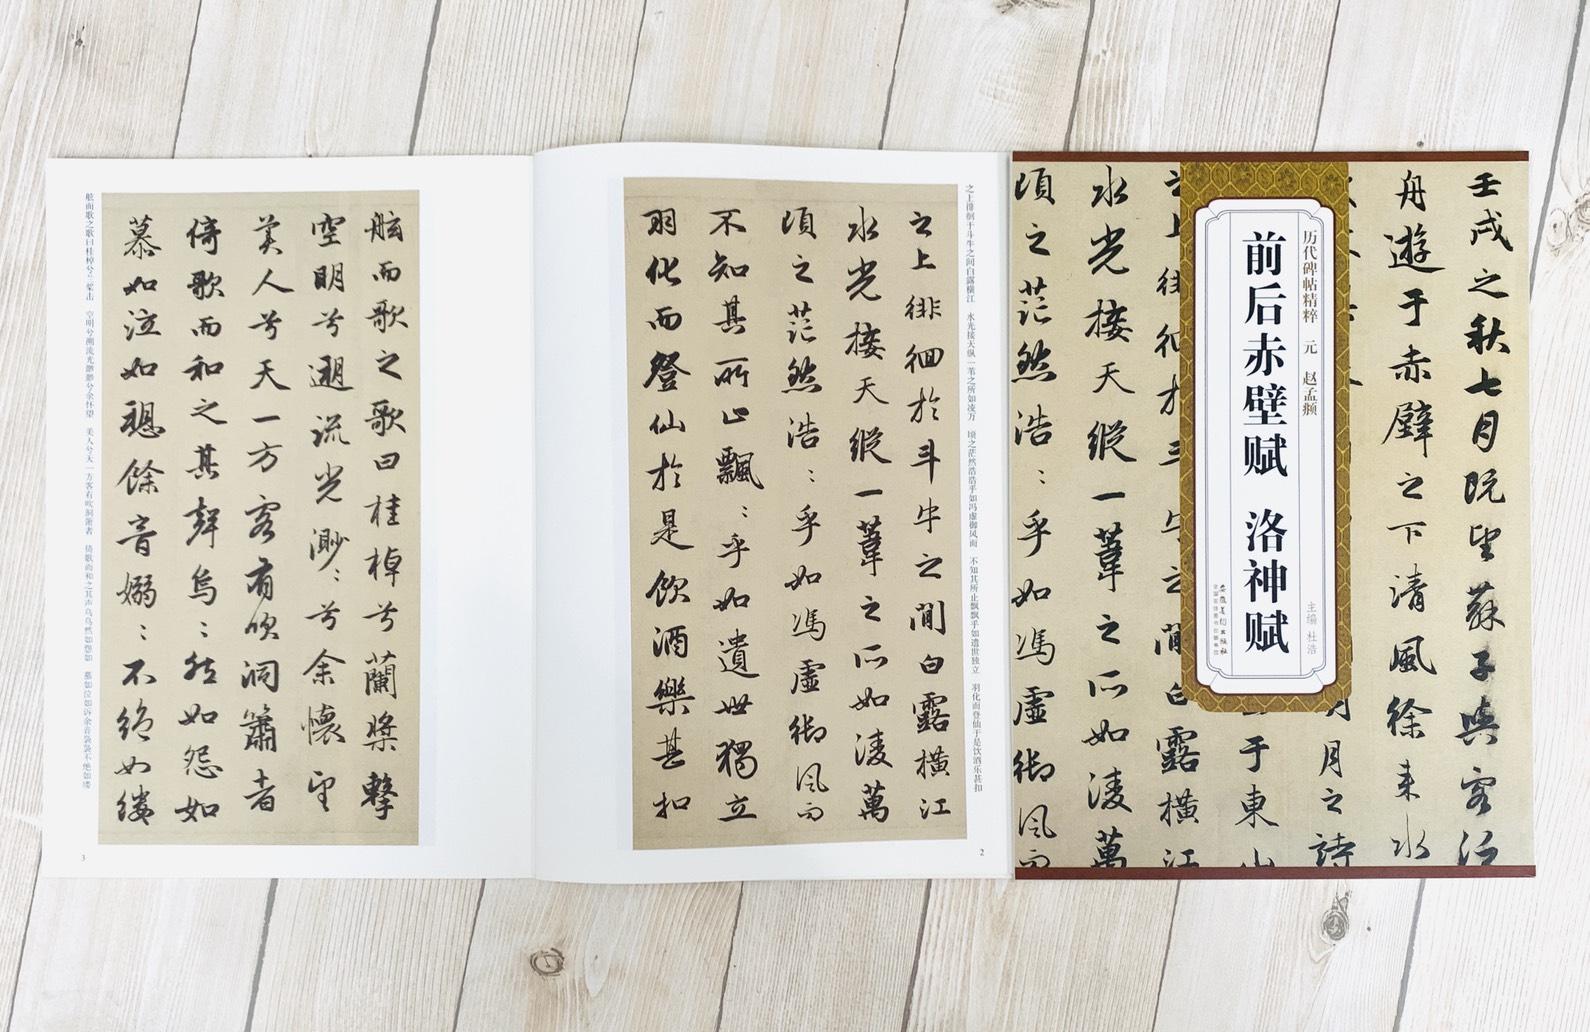 壬戌之秋七月既望蘇子與客泛
舟遊于赤壁之下清風徐来水
月之詩
于東山
水光接天縱一葦之所如淩萬
頃之茫然浩：乎如馮虛御風而
历代碑帖精粹 元 赵孟頫
前后赤壁赋 洛神赋
主编 杜浩
安徽美术出版社
全国百佳图书出版单位
之上徘徊于斗牛之间白露横江 水光接天纵一苇之所如凌万 顷之茫然浩浩乎如冯虚御风而 不知其所止飘飘乎如遗世独立 羽化而登仙于是饮酒乐甚扣
之上徘徊於斗牛之間白露橫江
水光接天縱一葦之所如淩萬
頃之茫然浩：乎如馮虛御風而
不知其所止飄：乎如遺世獨立
羽化而登仙於是飲酒樂甚扣
2
舷而歌之歌曰桂棹兮蘭槳擊
空明兮遡流光渺：兮余懷望
美人兮天一方客有吹洞簫者
倚歌而和之其聲烏：然如怨如
慕如泣如愬餘音嫋：不絕如縷
舷而歌之歌曰桂棹兮兰桨击 空明兮溯流光渺渺兮余怀望 美人兮天一方客有吹洞箫者 倚歌而和之其声乌乌然如怨如 慕如泣如诉余音袅袅不绝如缕
3